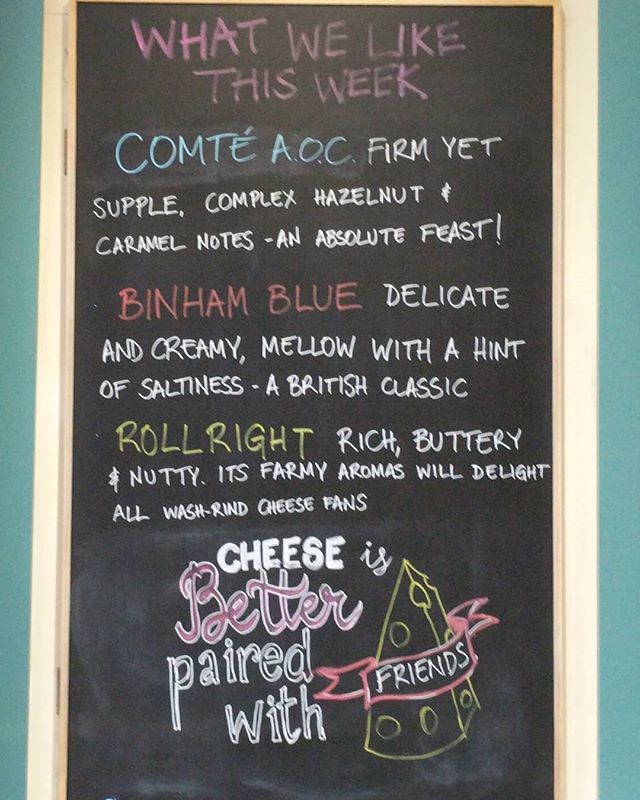 WHAT WE LIKE
THIS WEEK
COMTÉ A.O.C. FIRM YET
SUPPLE, COMPLEX HAZELNUT &
CARAMEL NOTES - AN ABSOLUTE FEAST!
BINHAM BLUE DELICATE
AND CREAMY, MELLOW WITH A HINT
OF SALTINESS - A BRITISH CLASSIC
ROLLRIGHT RICH, BUTTERY
& NUTTY. ITS FARMY AROMAS WILL DELIGHT
ALL WASH-RIND CHEESE FANS
CHEESE is
Better
paired
with
FRIENDS